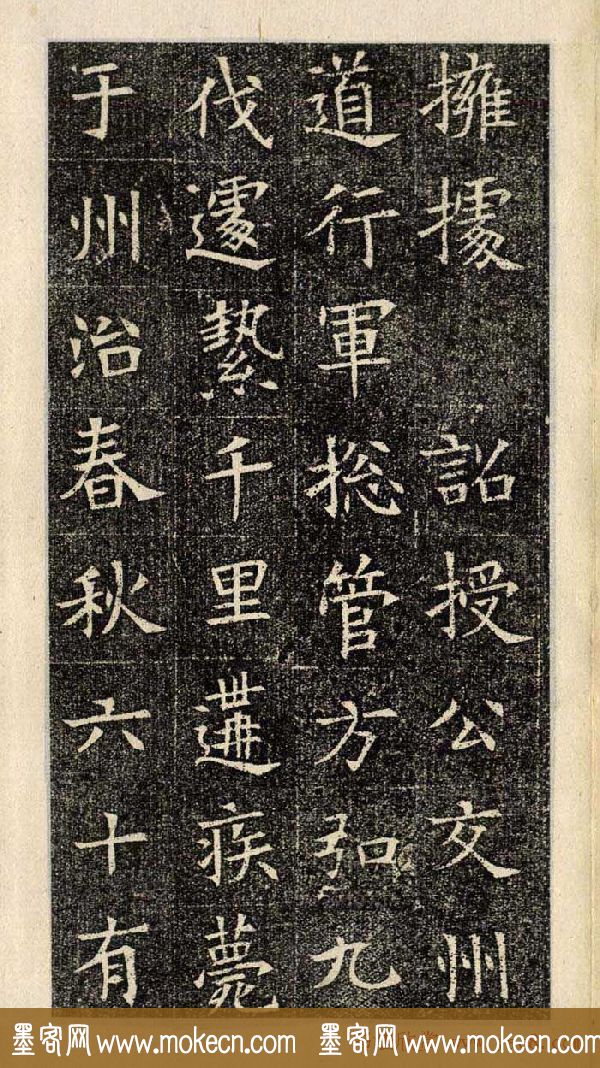 擁據 詔授公交州
道行軍捴管方弘九
伐遽縶千里遘疾薨
于州治春秋六十有
墨客网 www.mokecn.com 墨客网 www.mokecn.com